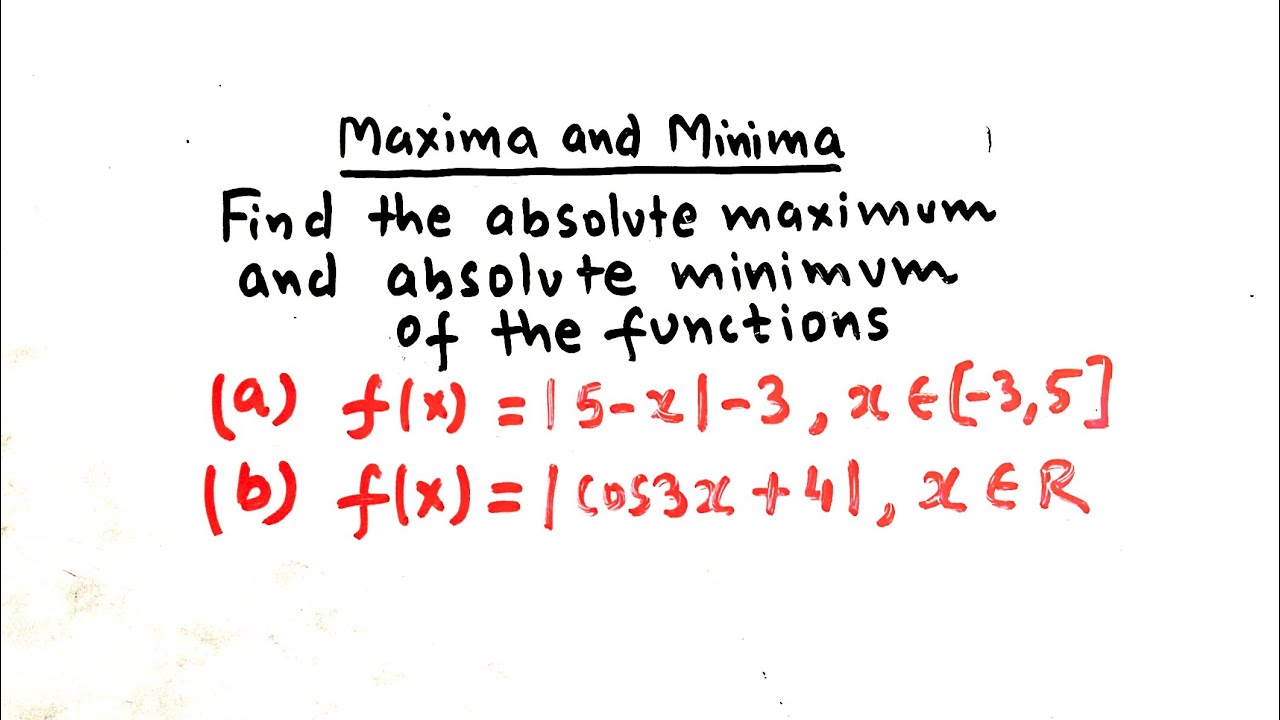 Maxima and Minima
Find the absolute maximum
and absolute minimum
of the functions
(a) f(x) = |5-x|-3, x ∈ [-3,5]
(b) f(x) = |cos3x+4|, x ∈ R